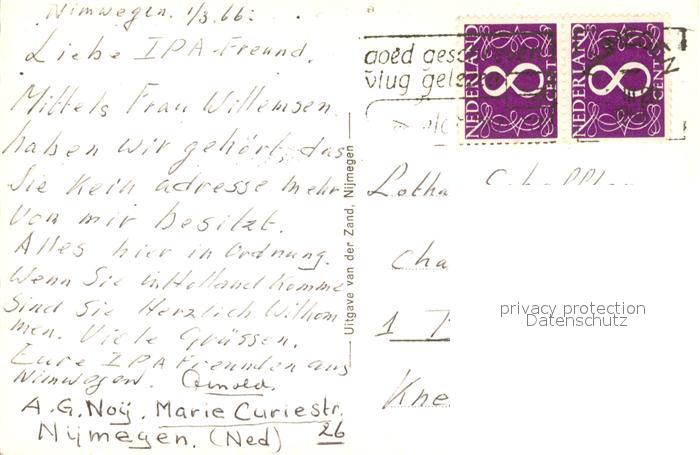 Nimwegen. 1/3.66:
Liebe IPA-Freund.
Mittels Frau Willemsen
haben wir gehört, das
Sie Kein adresse mehr
von mir besitzt.
Alles hier in Ordnung.
Wenn Sie in Holland Komme
Sind Sie Herzlich Wilkom
men. Viele Grüssen.
Eure IPA Freunden aus
Nimwegen. Arnold.
A.G. Noij. Marie Curiestr.
26
Nijmegen. (Ned)
Uitgave van der Zand, Nijmegen
goed
vlug
NEDERLAND
8
CENT
NEDERLAND
8
CENT
Lotha
Cha
1
Kne
privacy protection
Datenschutz